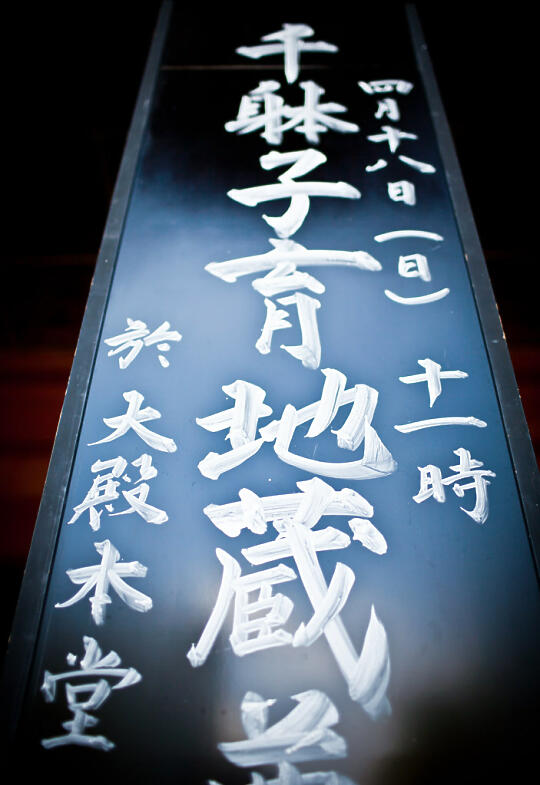 四月十八日（日）十一時
千躰子育地蔵
於大殿本堂